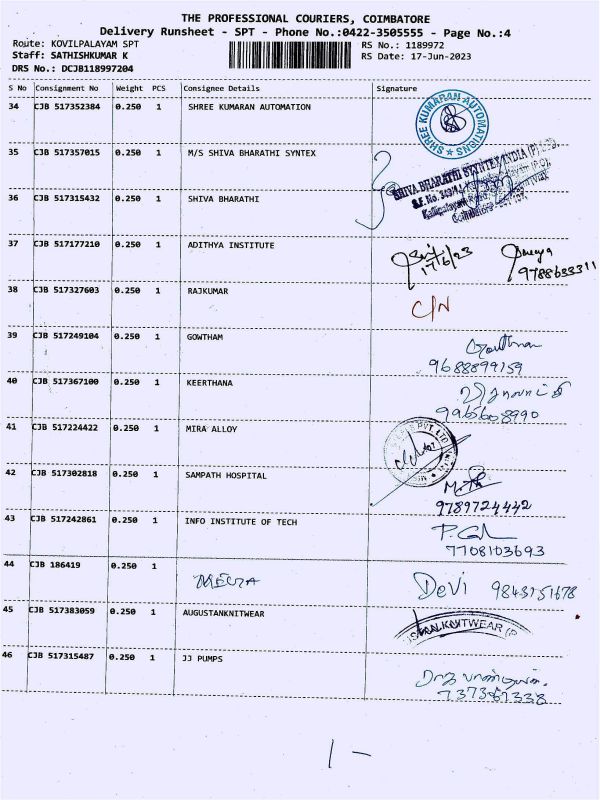 THE PROFESSIONAL COURIERS, COIMBATORE
Delivery Runsheet - SPT - Phone No.:0422-3505555 - Page No.:4
Route: KOVILPALAYAM SPT RS No.: 1189972
Staff: SATHISHKUMAR K RS Date: 17-Jun-2023
DRS No.: DCJB118997204
S No Consignment No Weight PCS Consignee Details Signature
34 CJB 517352384 0.250 1 SHREE KUMARAN AUTOMATION SHREE KUMARAN AUTOMATIONS
35 CJB 517357015 0.250 1 M/S SHIVA BHARATHI SYNTEX
SHIVA BHARATHI SYNTEX INDIA (P) LTD.
36 CJB 517315432 0.250 1 SHIVA BHARATHI
37 CJB 517177210 0.250 1 ADITHYA INSTITUTE
17/6/23 9788633311
38 CJB 517327603 0.250 1 RAJKUMAR C/N
39 CJB 517249104 0.250 1 GOWTHAM Gowtham
9688899159
40 CJB 517367100 0.250 1 KEERTHANA
9966608990
41 CJB 517224422 0.250 1 MIRA ALLOY
42 CJB 517302818 0.250 1 SAMPATH HOSPITAL
9789724442
43 CJB 517242861 0.250 1 INFO INSTITUTE OF TECH
7708103693
44 CJB 186419 0.250 1 Devi 9843151678
45 CJB 517383059 0.250 1 AUGUSTANKNITWEAR
46 CJB 517315487 0.250 1 JJ PUMPS